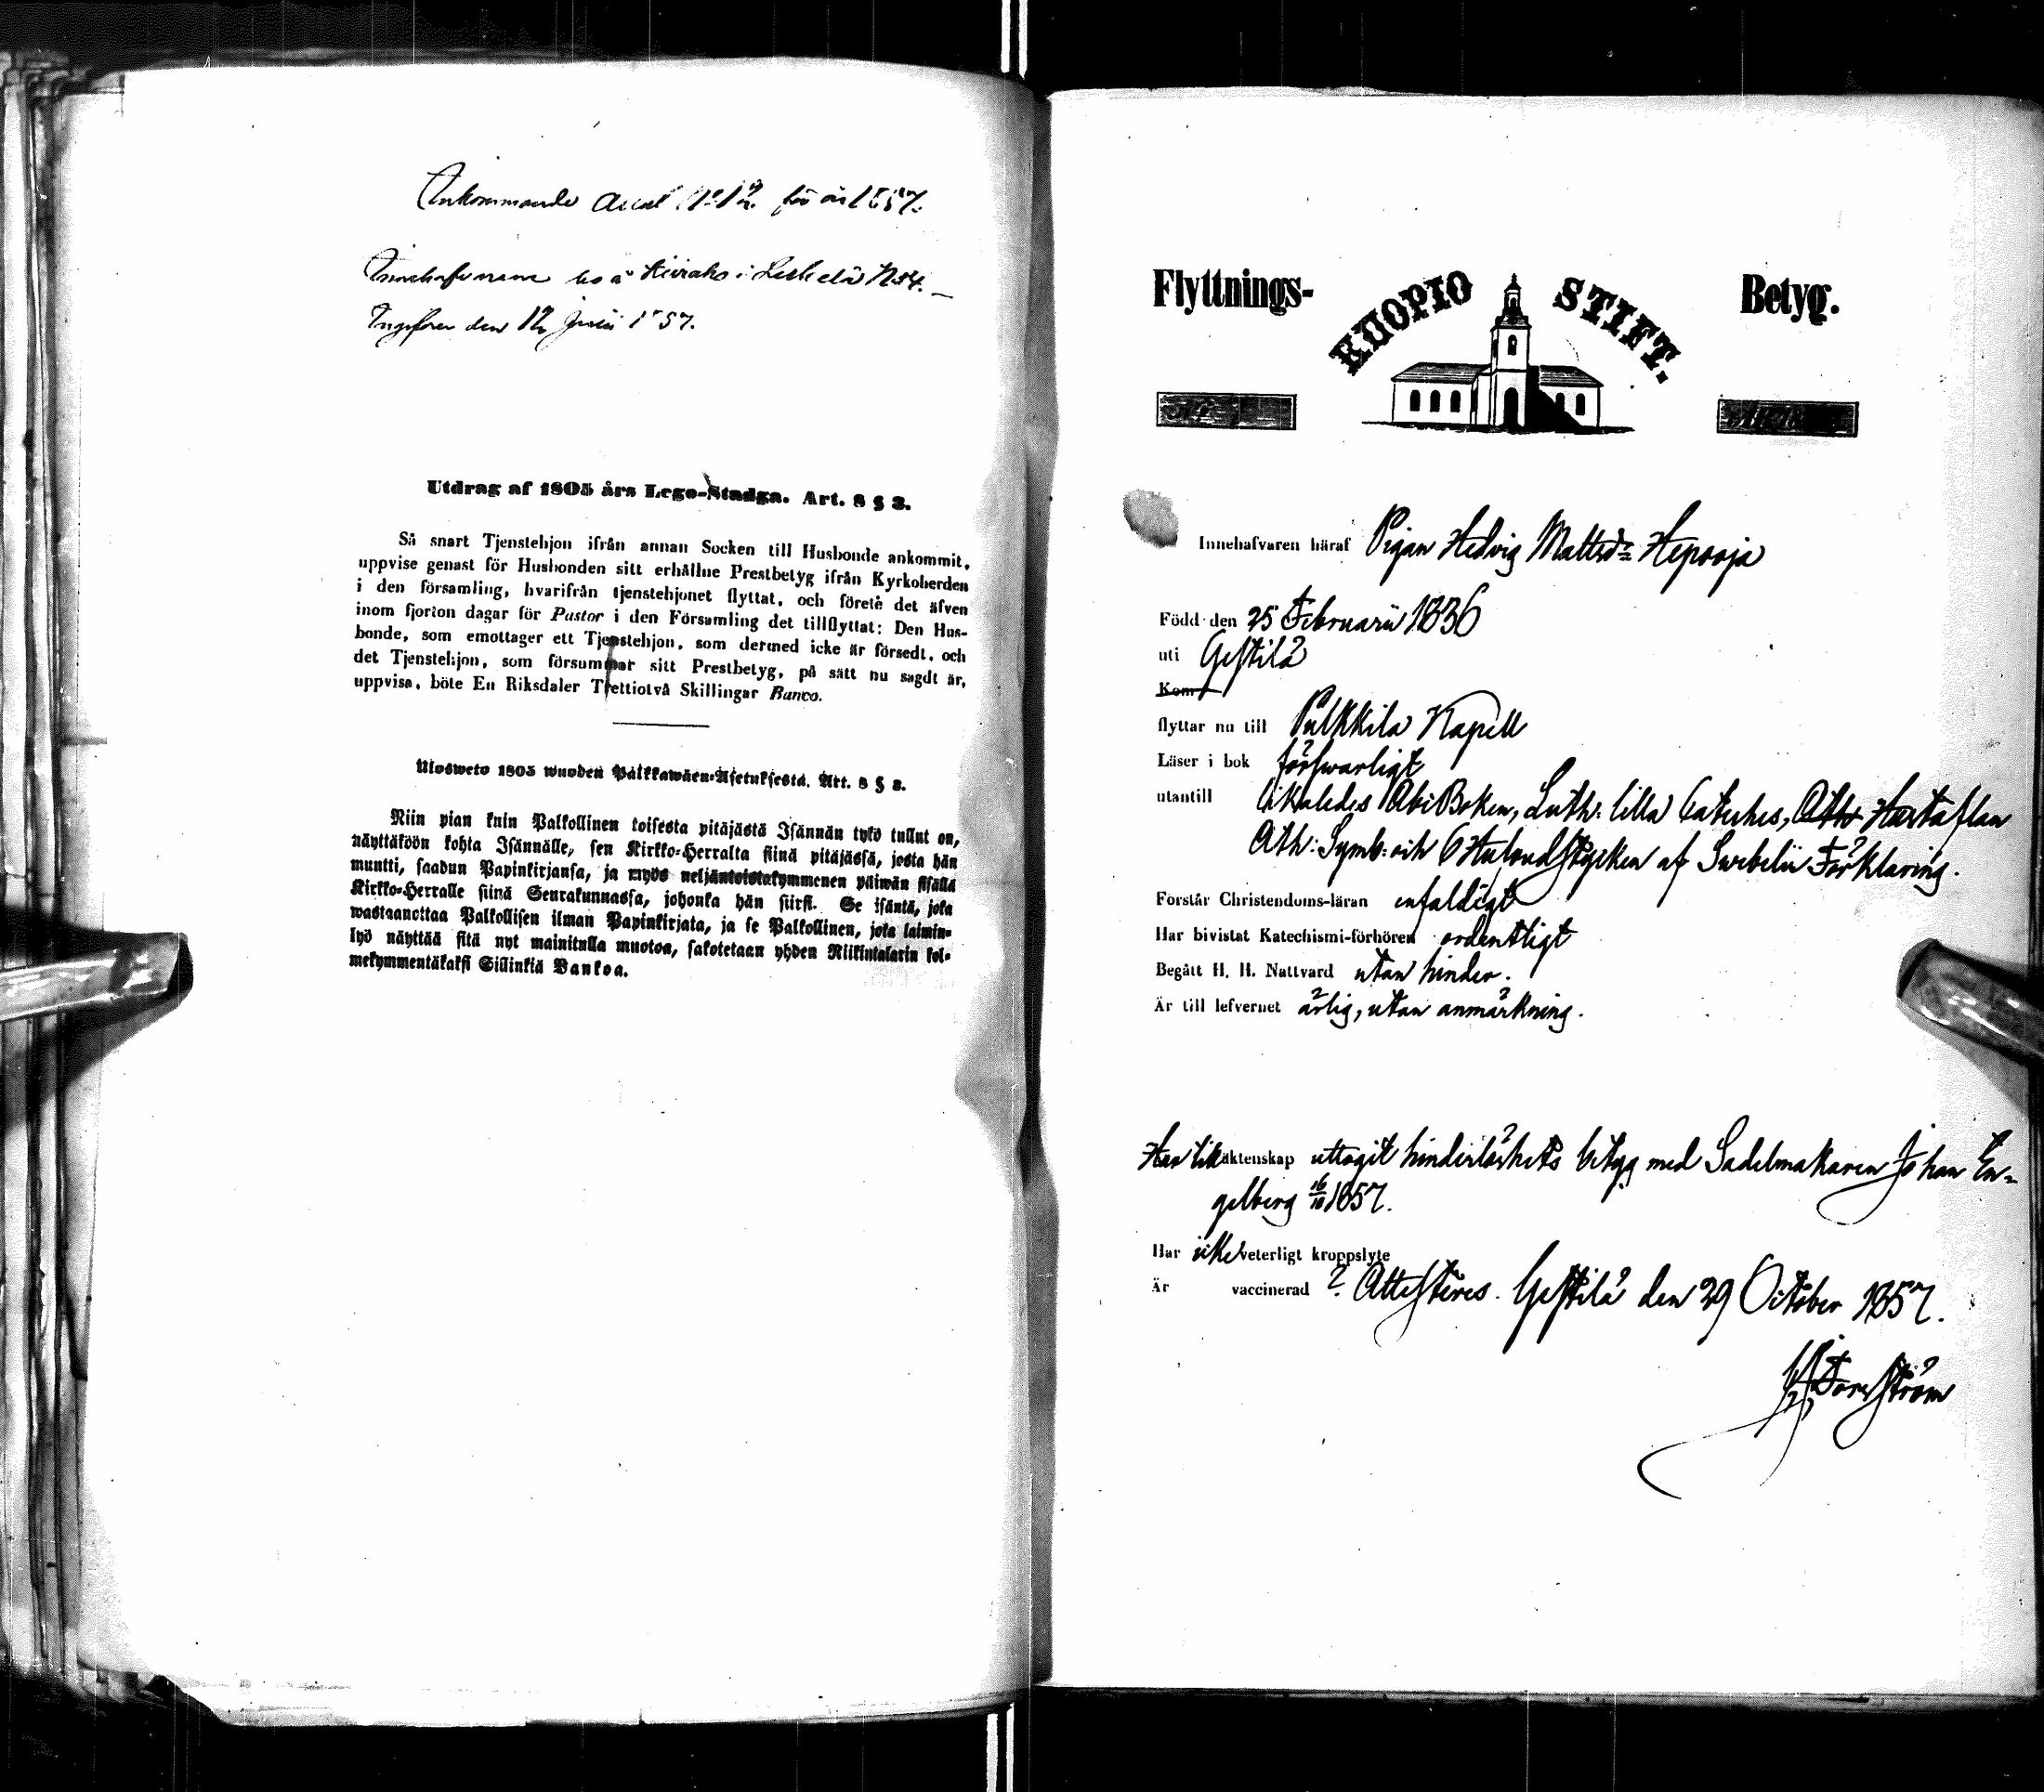 Inkommande Attest No 12 för år 1857.
Innehafvarena bo å Keirako i Leskelä No 4.
Ingifven den 12 Junii 1857.
Utdrag af 1805 års Lego-Stadga. Art. 8 § 3.
Så snart Tjenstehjon ifrån annan Socken till Husbonde ankommit,
uppvise genast för Husbonden sitt erhållne Prestbetyg ifrån Kyrkoherden
i den församling, hvarifrån tjenstehjonet flyttat, och förete det äfven
inom fjorton dagar för Pastor i den Församling det tillflyttat: Den Hus-
bonde, som emottager ett Tjenstehjon, som dermed icke är försedt, och
det Tjenstehjon, som försummar sitt Prestbetyg, på sätt nu sagdt är,
uppvisa, böte En Riksdaler Trettiotvå Skillingar Banco.
Ulosweto 1805 wuoden Palkkawäen-Asetuksesta. Art. 8 § 3.
Niin pian kuin Palkollinen toisesta pitäjästä Isännän tykö tullut on,
näyttäköön kohta Isännälle, sen Kirkko-Herralta siinä pitäjässä, josta hän
muutti, saadun Papinkirjansa, ja myös neljäntoistakymmenen päiwän sisällä
Kirkko-Herralle siinä Seurakunnassa, johonka hän siirsi. Se isäntä, joka
wastaanottaa Palkollisen ilman Papinkirjata, ja se Palkollinen, joka laimin-
lyö näyttää sitä nyt mainitulla muotoa, sakotetaan yhden Riikintalarin kol-
mekymmentäkaksi Sillinkiä Bankoa.
Flyttnings- KUOPIO STIFT. Betyg.
Innehafvaren häraf Pigan Hedvig Mattsdr Hepooja
Född den 25 Februarii 1836
uti Gestilä
Kom
flyttar nu till Pulkkila Kapell
Läser i bok försvarligt
utantill likaledes Abc Boken, Luth: lilla Cateches, Ath Hustaflan
Ath: Symb: och 6 Hufvudstycken af Svebelii Förklaring.
Förstår Christendoms-läran enfaldigt
Har bivistat Katechismi-förhören ordentligt
Begått H. H. Nattvard utan hinder.
Är till lefvernet ärlig, utan anmärkning.
Har till äktenskap uttagit hinderlöshets betyg med Sadelmakaren Johan En-
gelberg 16/10 1857.
Har icke veterligt kroppslyte
Är vaccinerad ? Attesteres. Gestilä den 29 October 1857.
Forsström